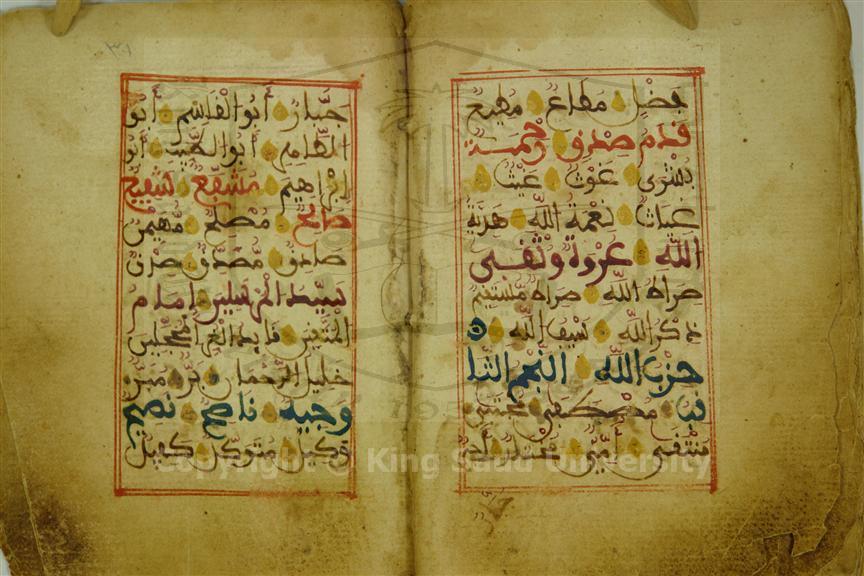 فضل مطاع مطيع
قدم صدق رحمة
بشرى غوث غيث
غياث نعمة الله هدية
الله عروة وثقى
صراط الله صراط مستقيم
ذكر الله سيف الله
حزب الله النجم الثا
قب مصطفى مجتبى
منتقى أمي مختار أجير
جبار أبو القاسم أبو
الطاهر أبو الطيب أبو
إبراهيم مشفع شفيع
صالح مصلح مهيمن
صادق مصدق صدق
سيد المرسلين إمام
المتقين قايد الغر المحجلين
خليل الرحمان بر مبر
وجيه ناصح نصيح
وكيل متوكل كفيل
Copyright © King Saud University